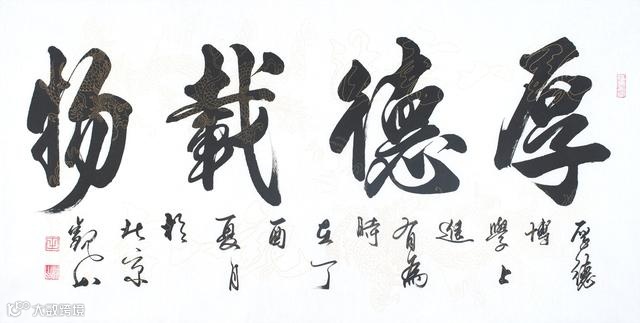 厚德載物
厚德博學上進有為時在丁酉夏月於北京
大数跨境